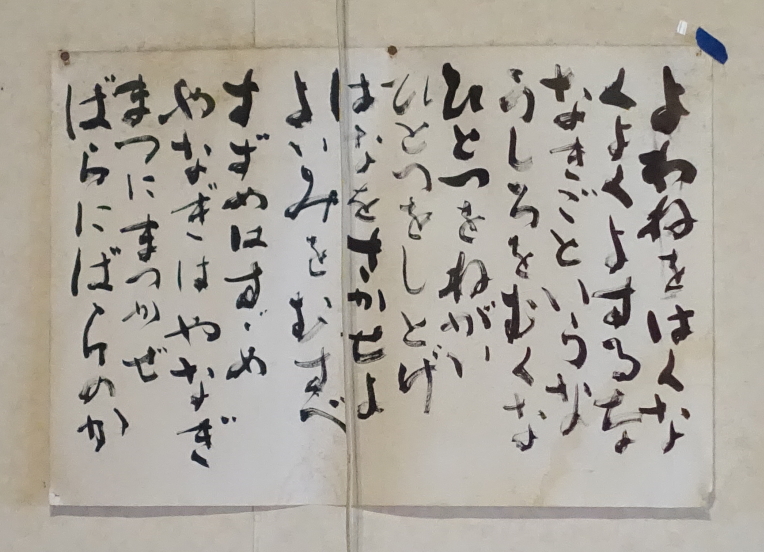 よわねをはくな
くよくよするな
なきごというな
うしろをむくな
ひとつをねがい
ひとつをしとげ
はなをさかせよ
よいみをむすべ
すずめはすゞめ
やなぎはやなぎ
まつにまつかぜ
ばらにばらのか